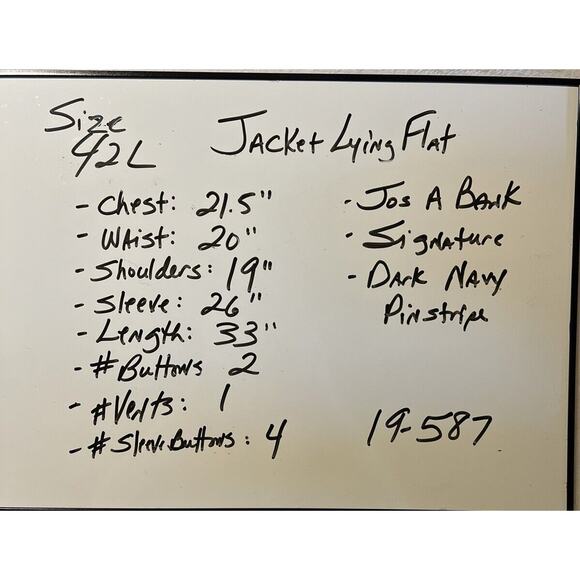 Size
42L
Jacket Lying Flat
- Chest: 21.5"
- Waist: 20"
- Shoulders: 19"
- Sleeve: 26"
- Length: 33"
- # Buttons 2
- # Vents: 1
- # Sleeve Buttons: 4
- Jos A Bank
- Signature
- Dark Navy
Pinstripe
19-587